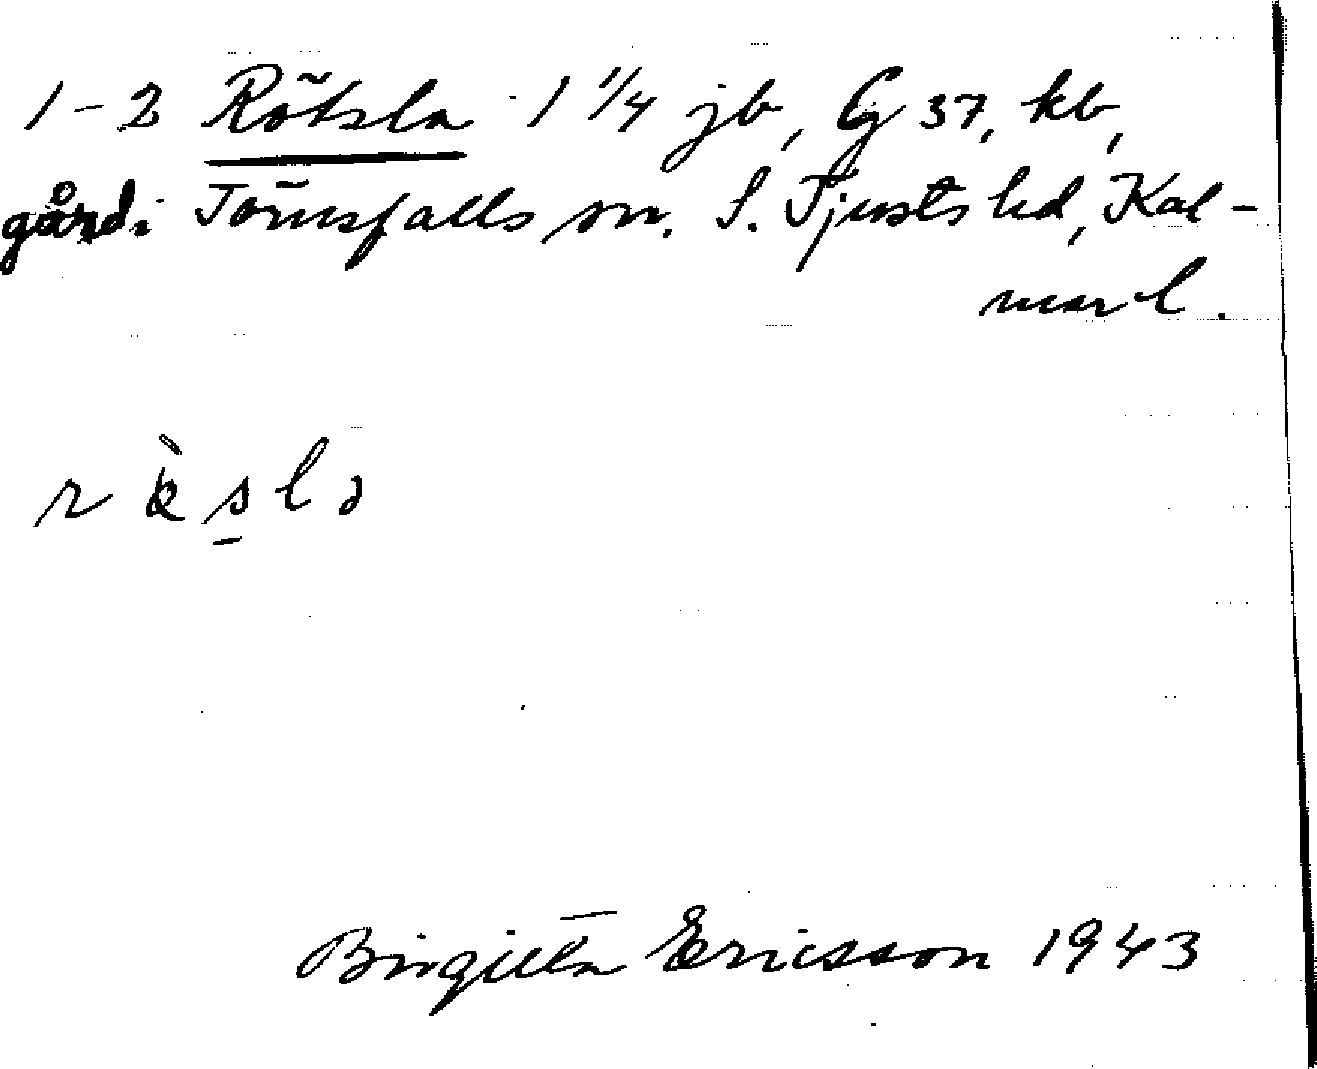 1-2 Rötsla 1 1/4 jb, Gj 37, kb,
gård i Törnsfalls sn. S. Tjusts hd, Kal-
mar l.
r ö̀ s l a
Birgitta Ericsson 1943